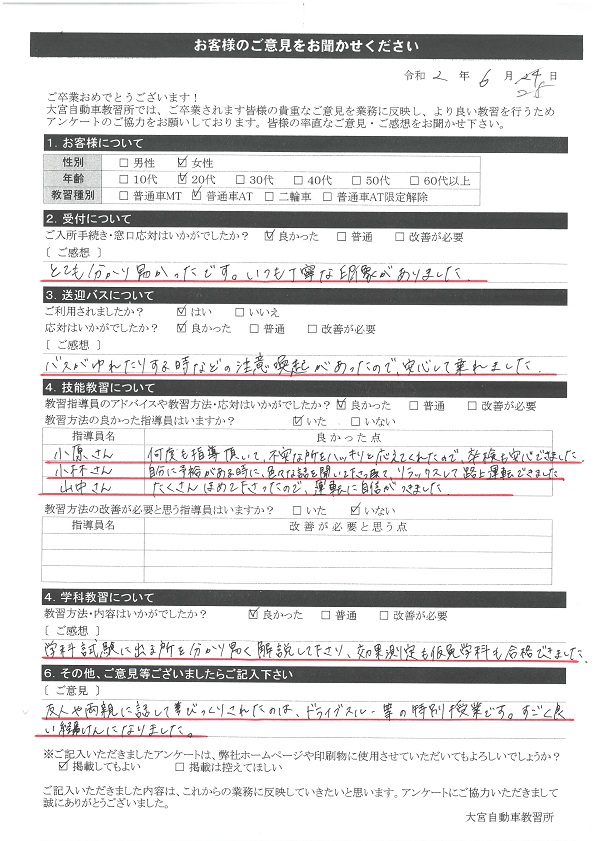 お客様のご意見をお聞かせください
令和 2 年 6 月 24 日
28
ご卒業おめでとうございます！
大宮自動車教習所では、ご卒業されます皆様の貴重なご意見を業務に反映し、より良い教習を行うため
アンケートのご協力をお願いしております。皆様の率直なご意見・ご感想をお聞かせ下さい。
1. お客様について
性別 □ 男性 ☑ 女性
年齢 □ 10代 ☑ 20代 □ 30代 □ 40代 □ 50代 □ 60代以上
教習種別 □ 普通車MT ☑ 普通車AT □ 二輪車 □ 普通車AT限定解除
2. 受付について
ご入所手続き・窓口応対はいかがでしたか？ ☑ 良かった □ 普通 □ 改善が必要
[ ご感想 ]
とても分かり易かったです。いつも丁寧な印象がありました。
3. 送迎バスについて
ご利用されましたか？ ☑ はい □ いいえ
応対はいかがでしたか？ ☑ 良かった □ 普通 □ 改善が必要
[ ご感想 ]
バスがゆれたりする時などの注意喚起があったので、安心して乗れました。
4. 技能教習について
教習指導員のアドバイスや教習方法・応対はいかがでしたか？ ☑ 良かった □ 普通 □ 改善が必要
教習方法の良かった指導員はいますか？ ☑ いた □ いない
指導員名 良かった点
小原さん 何度も指導頂いて、不安な所をハッキリと応えてくれたので、卒検も安心できました。
さん 自分に余裕がある時に、色々な話を聞いて下さって、リラックスして路上運転できました
山中さん たくさんほめて下さったので、運転に自信がつきました。
教習方法の改善が必要と思う指導員はいますか？ □ いた ☑ いない
指導員名 改善が必要と思う点
4. 学科教習について
教習方法・内容はいかがでしたか？ ☑ 良かった □ 普通 □ 改善が必要
[ ご感想 ]
学科試験に出る所を分かり易く解説して下さり、効果測定も仮免学科も合格できました。
6. その他、ご意見等ございましたらご記入下さい
[ ご意見 ]
友人や両親に話して1番びっくりされたのは、ドライブスルー等の特別授業です。すごく良
い経験になりました。
※ご記入いただきましたアンケートは、弊社ホームページや印刷物に使用させていただいてもよろしいでしょうか？
☑ 掲載してもよい □ 掲載は控えてほしい
ご記入いただきました内容は、これからの業務に反映していきたいと思います。アンケートにご協力いただきまして
誠にありがとうございました。
大宮自動車教習所